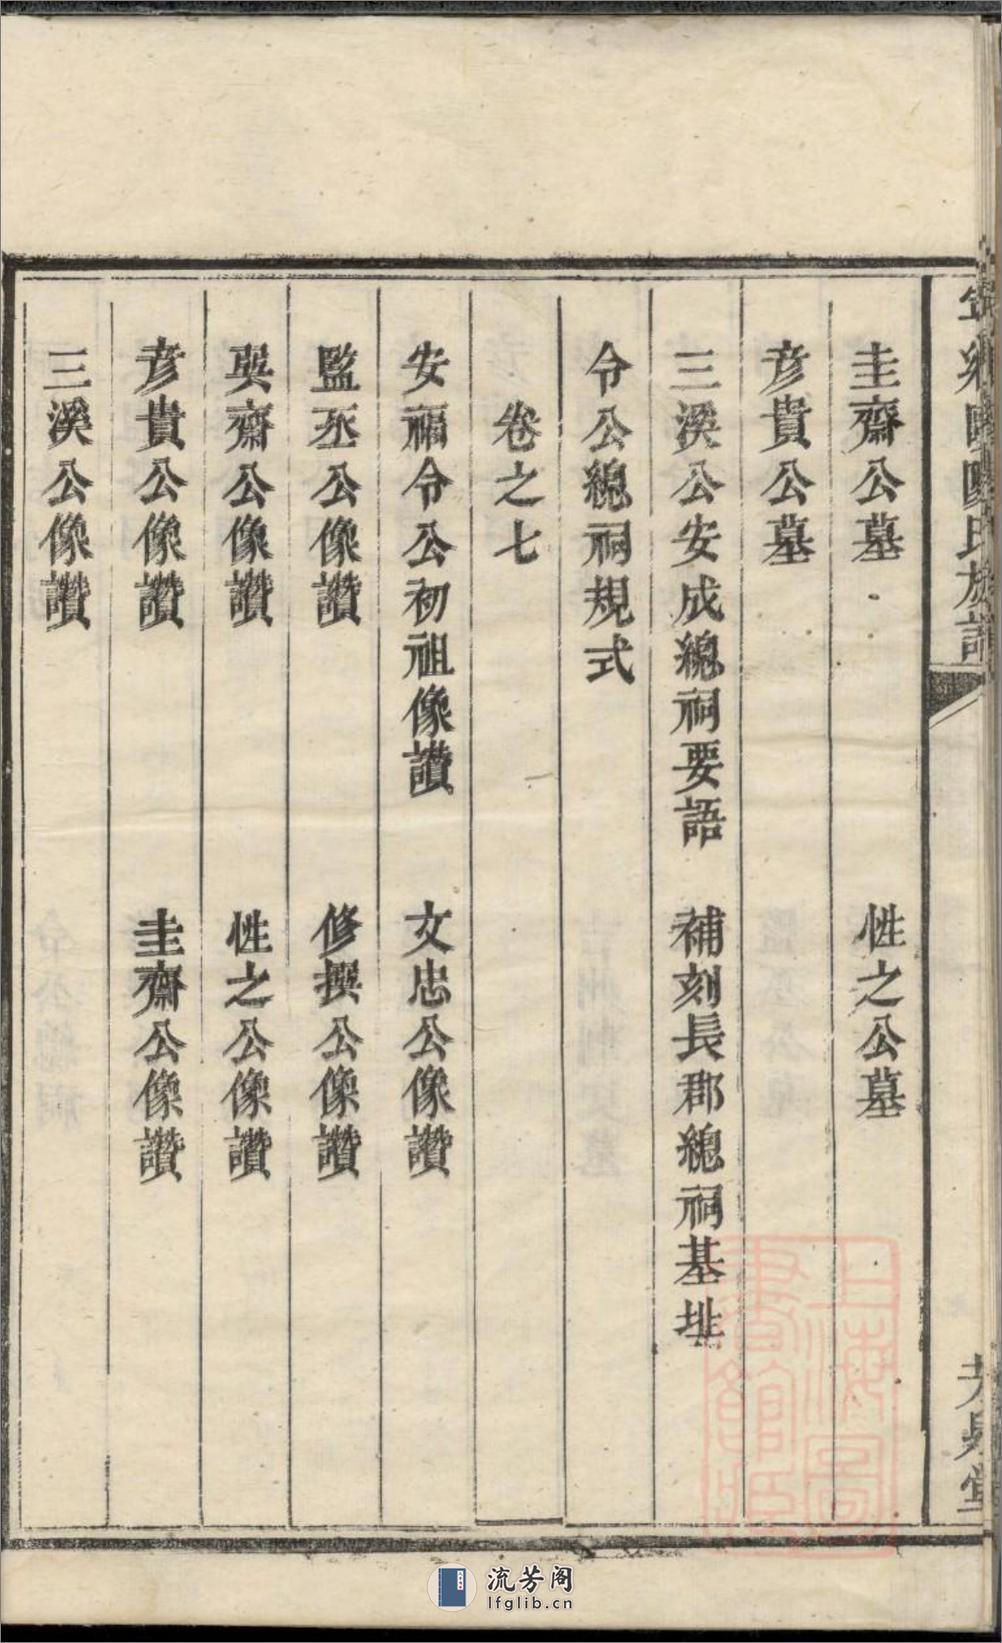 圭齋公墓　性之公墓
彦貴公墓
三溪公安成總祠要語　補刻長郡總祠基址
令公總祠規式
卷之七
安福令公初祖像讚　文忠公像讚
監丞公像讚　修撰公像讚
巽齋公像讚　性之公像讚
彦貴公像讚　圭齋公像讚
三溪公像讚
上海圖書館藏
流芳阁
lfglib.cn